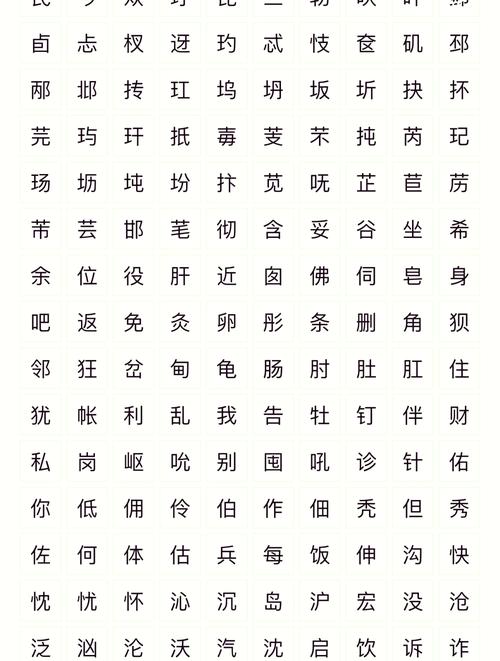 卣 忐 杈 迓 玓 忒 忮 奁 矶 邳
邴 邶 抟 玒 坞 坍 坂 圻 抉 抔
芫 玙 玕 抵 毐 芰 芣 扽 芮 玘
玚 坜 坉 坋 抃 苋 呒 芷 苣 苈
芾 芸 邯 芼 彻 含 妥 谷 坐 希
余 位 役 肝 近 囱 佛 伺 皂 身
吧 返 免 灸 卵 彤 条 删 角 狈
邻 狂 岔 甸 龟 肠 肘 肚 肛 住
犹 帐 利 乱 我 告 牡 钉 伴 财
私 岗 岖 吮 别 囤 吼 诊 针 佑
你 低 佣 伶 伯 作 佃 秃 但 秀
佐 何 体 估 兵 每 饭 伸 沟 快
忱 忧 怀 沁 沉 岛 沪 宏 没 沧
泛 汹 沦 沃 汽 沈 启 饮 诉 诈